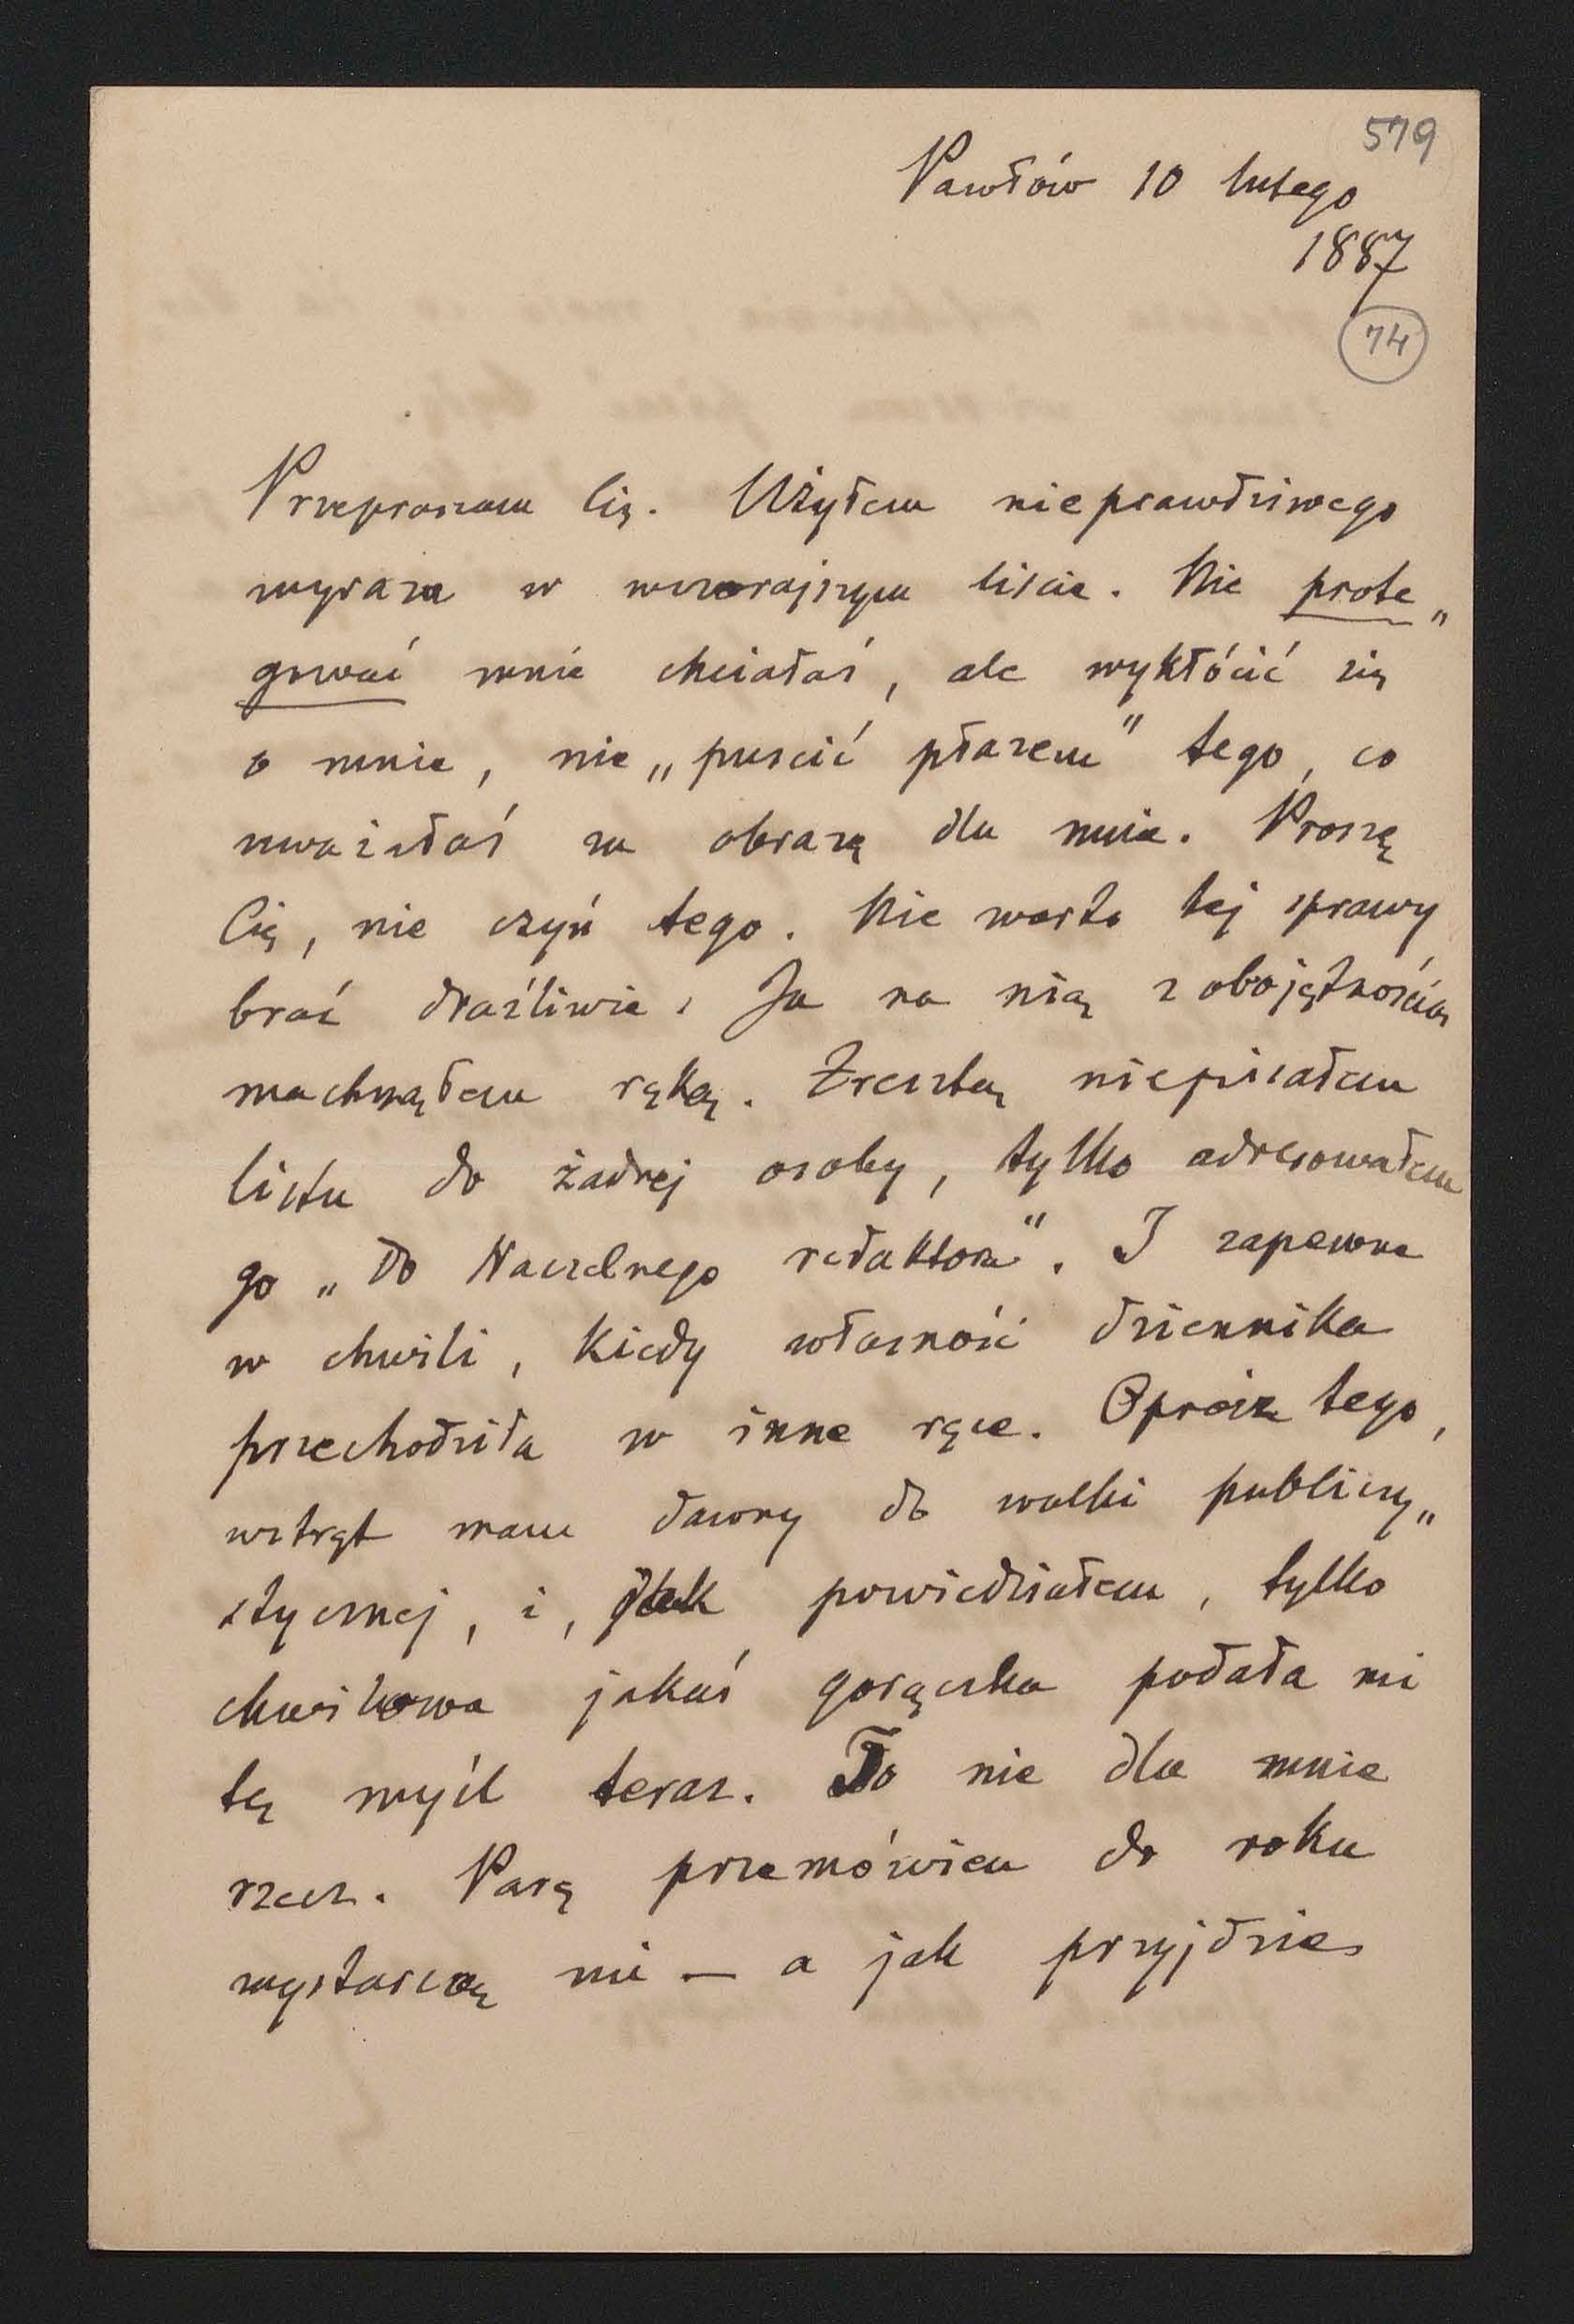 579
Pawłów 10 lutego
1887
74
Przepraszam Cię. Użyłem nieprawdziwego
wyrazu w wczorajszym liście. Nie prote„
gować mnie chciałaś, ale wykłócić się
o mnie, nie „puścić płazem" tego, co
uważałaś za obrazę dla mnie. Proszę
Cię, nie czyń tego. Nie warto tej sprawy
brać draźliwie. Ja na nią z obojętnością
machnąłem ręką. Zresztą niepisałem
listu do żadnej osoby, tylko adresowałem
go „Do Naczelnego redaktora". I zapewne
w chwili, kiedy własność dziennika
przechodziła w inne ręce. Oprócz tego,
wstręt mam dawny do walki publicy„
stycznej, i, jak powiedziałem, tylko
chwilowa jakaś gorączka podała mi
tę myśl teraz. To nie dla mnie
rzecz. Parę przemówień do roku
wystarczą mi — a jak przyjdzie